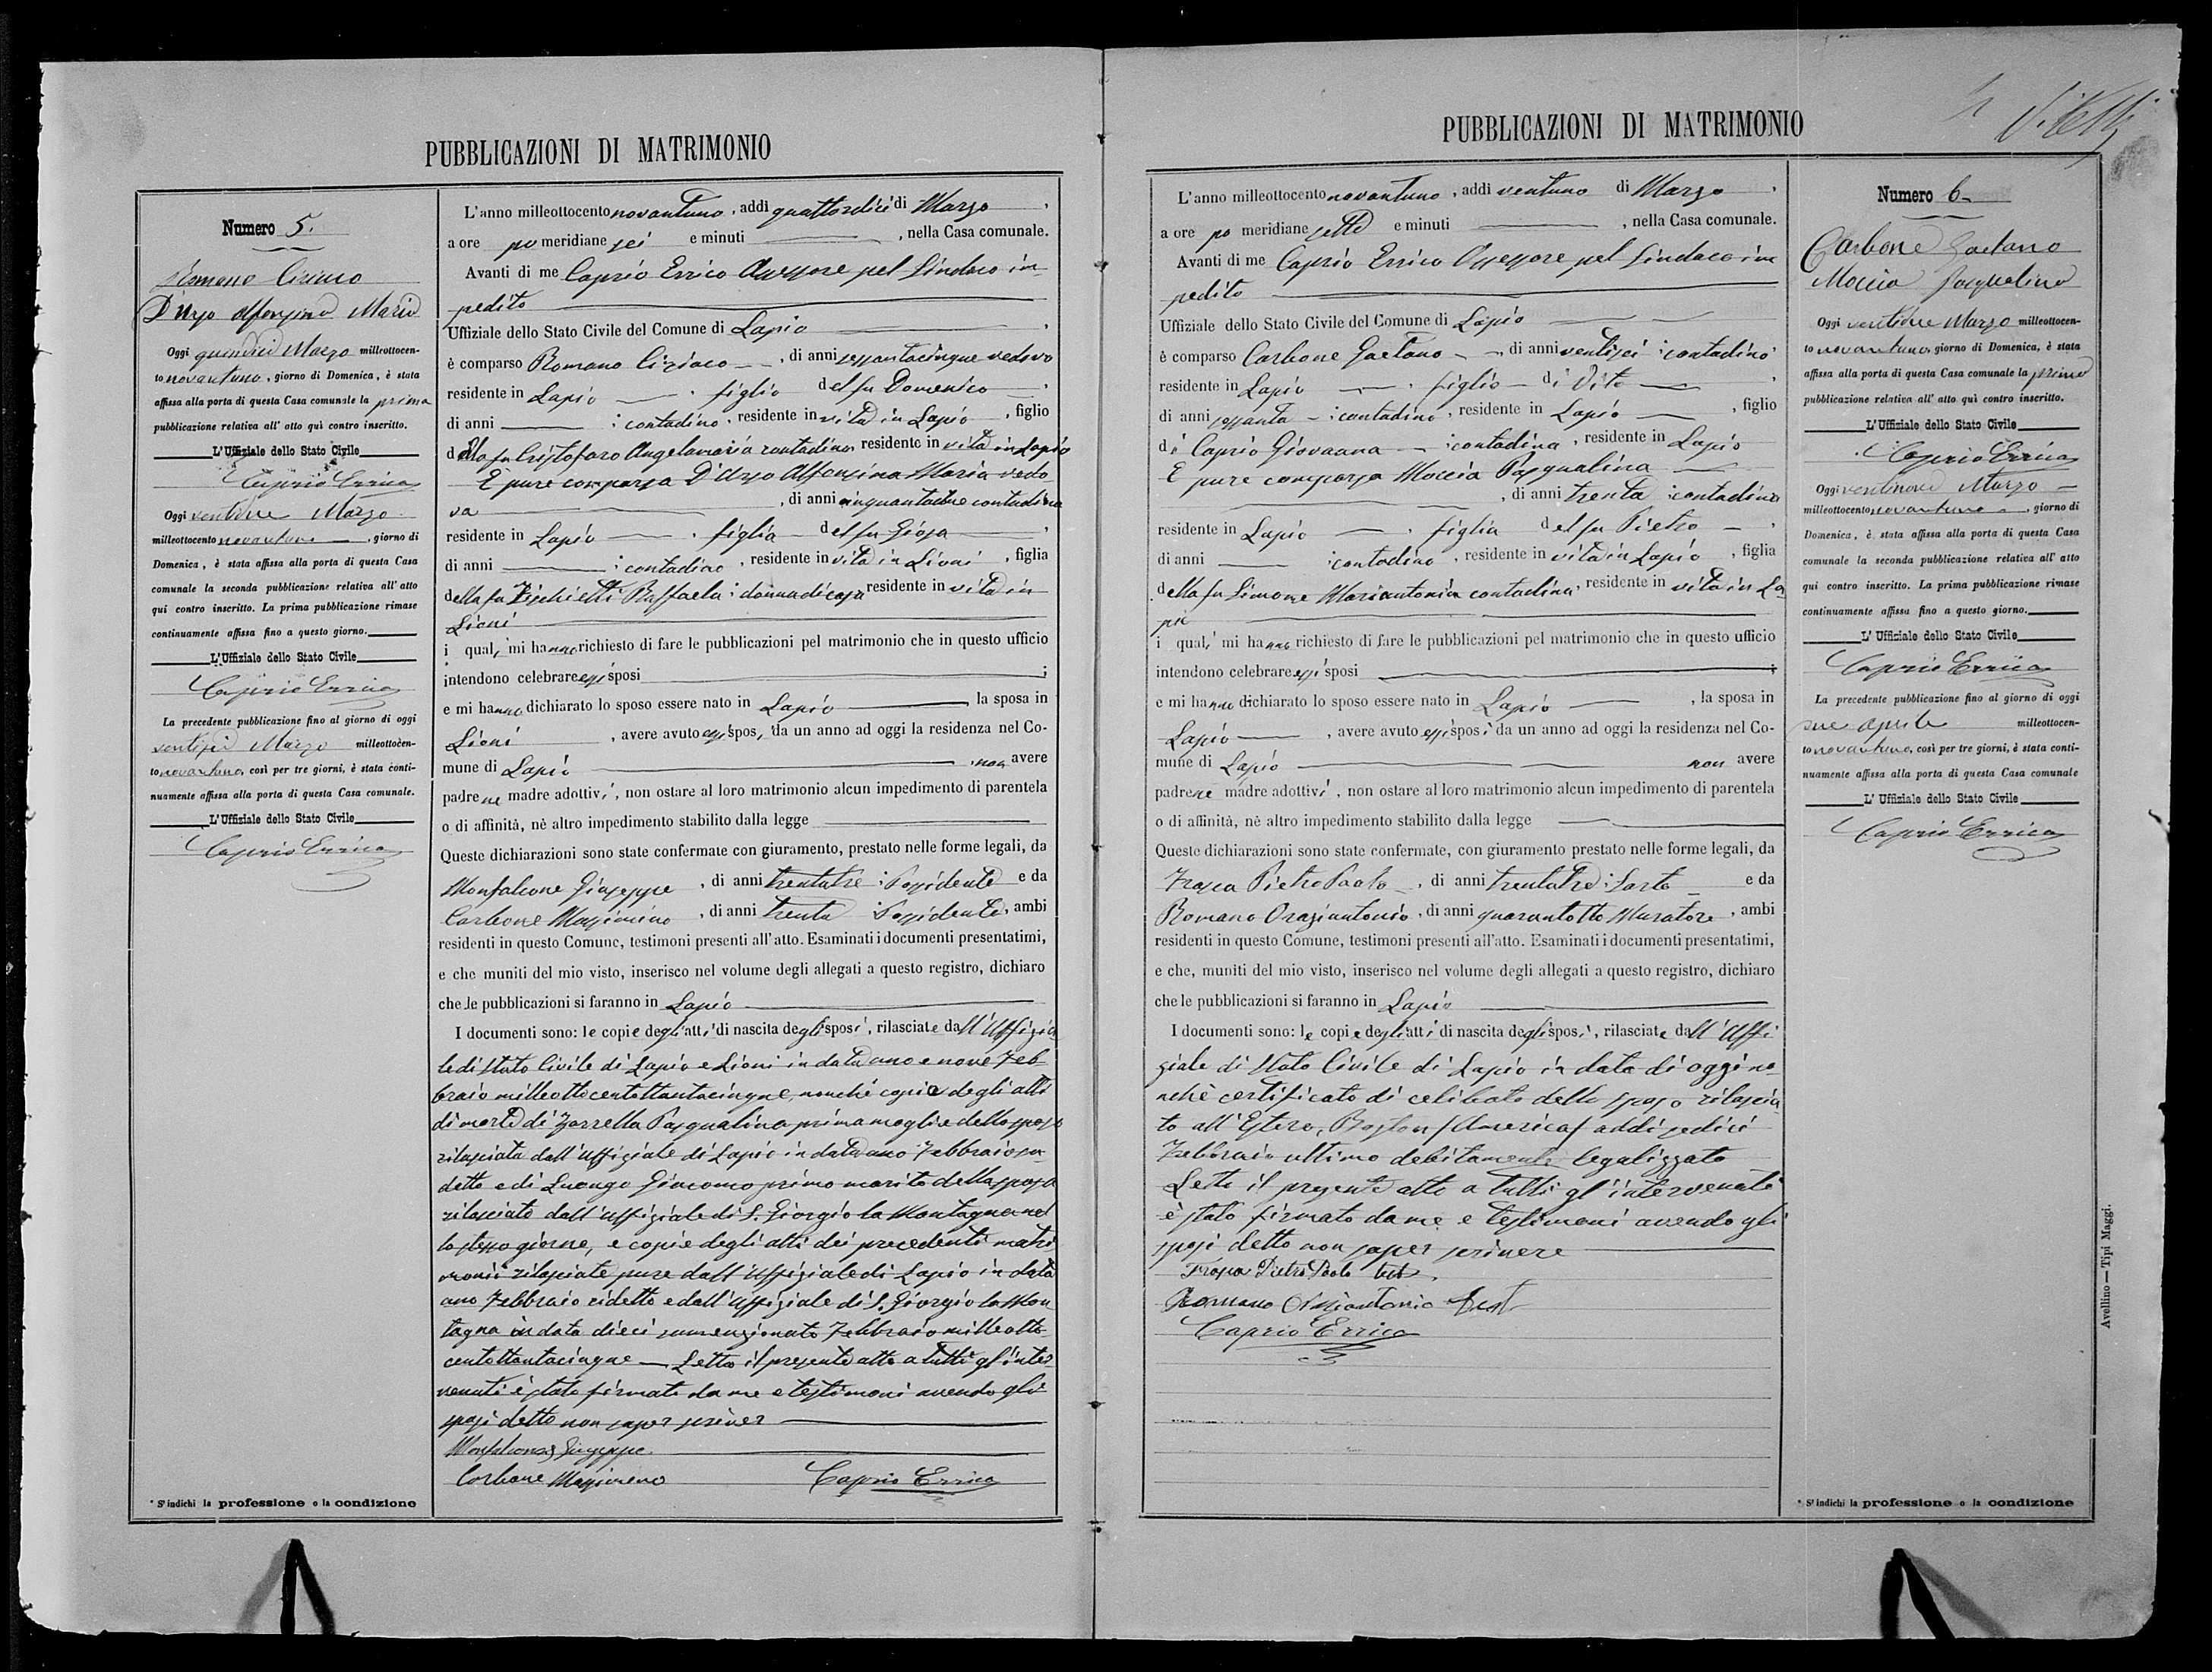 PUBBLICAZIONI DI MATRIMONIO
Numero 5.
Romano Ciriaco
D'Urso Alfonsina Maria
Oggi quindici Marzo milleottocen-
to novantuno, giorno di Domenica, è stata
affissa alla porta di questa Casa comunale la prima
pubblicazione relativa all' atto quì contro inscritto.
L'Uffiziale dello Stato Civile
Caprio Errico
Oggi ventidue Marzo
milleottocento novantuno, giorno di
Domenica, è stata affissa alla porta di questa Casa
comunale la seconda pubblicazione relativa all' atto
qui contro inscritto. La prima pubblicazione rimase
continuamente affissa fino a questo giorno.
L'Uffiziale dello Stato Civile
Caprio Errico
La precedente pubblicazione fino al giorno di oggi
ventisei Marzo milleottocen-
to novantuno, così per tre giorni, è stata conti-
nuamente affissa alla porta di questa Casa comunale.
L'Uffiziale dello Stato Civile
Caprio Errico
* Si indichi la professione o la condizione
L'anno milleottocento novantuno, addi quattordici di Marzo,
a ore po meridiane sei e minuti , nella Casa comunale.
Avanti di me Caprio Errico Assessore pel Sindaco im-
pedito
Uffiziale dello Stato Civile del Comune di Lapio
è comparso Romano Ciriaco, di anni sessantacinque vedovo
residente in Lapio , figlio del fu Domenico,
di anni ; contadino, residente in vita in Lapio, figlio
della fu Cristofaro Angelamaria contadina residente in vita in Lapio
E pure comparsa D'Urso Alfonsina Maria vedo-
va , di anni cinquantadue contadina
residente in Lapio , figlia del fu Giosa,
di anni ; contadino, residente in vita in Lioni, figlia
della fu Raffaela ; donna di casa residente in vita in
Lioni
i quali mi hanno richiesto di fare le pubblicazioni pel matrimonio che in questo ufficio
intendono celebrare essi sposi ;
e mi hanno dichiarato lo sposo essere nato in Lapio , la sposa in
Lioni , avere avuto essi sposi da un anno ad oggi la residenza nel Co-
mune di Lapio , non avere
padre ne madre adottivi, non ostare al loro matrimonio alcun impedimento di parentela
o di affinità, nè altro impedimento stabilito dalla legge
Queste dichiarazioni sono state confermate con giuramento, prestato nelle forme legali, da
Monfalcone Giuseppe, di anni trentatre ; Possidente e da
Carbone Massimino, di anni trenta Possidente, ambi
residenti in questo Comune, testimoni presenti all'atto. Esaminati i documenti presentatimi,
e che muniti del mio visto, inserisco nel volume degli allegati a questo registro, dichiaro
che le pubblicazioni si faranno in Lapio
I documenti sono: le copie degli atti di nascita degli sposi, rilasciate dall'Uffizia
le di Stato Civile di Lapio e Lioni in data uno e nove Feb-
braio milleottocentottantacinque, nonchè copie degli atti
di morte di Zarrella Pasqualina prima moglie dello sposo
rilasciata dall'uffiziale di Lapio in data uno Febbraio su-
detto e di Luongo Giacomo primo marito della sposa
rilasciato dall'uffiziale di S. Giorgio la Montagna nel
lo stesso giorno, e copie degli atti dei precedenti matri
monii rilasciate pure dall'Uffiziale di Lapio in data
uno Febbraio ridetto e dall'uffiziale di S. Giorgio la Mon
tagna in data dieci summenzionato Febbraio milleotto
centottantacinque — Letto il presente atto a tutti gl'inter
venuti è stato firmato da me e testimoni avendo gli
sposi detto non saper scriver
Monfalcone Giuseppe
Carbone Massimino Caprio Errico
PUBBLICAZIONI DI MATRIMONIO
L'anno milleottocento novantuno, addi ventuno di Marzo,
a ore po meridiane sette e minuti , nella Casa comunale.
Avanti di me Caprio Errico Assessore pel Sindaco im
pedito
Uffiziale dello Stato Civile del Comune di Lapio
è comparso Carbone Gaetano, di anni ventisei ; contadino
residente in Lapio , figlio di Vito ,
di anni sessanta ; contadino, residente in Lapio , figlio
di Caprio Giovanna ; contadina, residente in Lapio
E pure comparsa Moccia Pasqualina
, di anni trenta ; contadina
residente in Lapio , figlia del fu Pietro ,
di anni ; contadino, residente in vita in Lapio, figlia
della fu Simone Mariantonia contadina, residente in vita in La
pio
i quali mi hanno richiesto di fare le pubblicazioni pel matrimonio che in questo ufficio
intendono celebrare essi sposi ;
e mi hanno dichiarato lo sposo essere nato in Lapio , la sposa in
Lapio , avere avuto essi sposi da un anno ad oggi la residenza nel Co-
mune di Lapio non avere
padre ne madre adottivi, non ostare al loro matrimonio alcun impedimento di parentela
o di affinità, nè altro impedimento stabilito dalla legge
Queste dichiarazioni sono state confermate, con giuramento prestato nelle forme legali, da
Frasca Pietro Paolo, di anni trentatre ; Sarto e da
Romano Oraziantonio, di anni quarantotto Muratore, ambi
residenti in questo Comune, testimoni presenti all'atto. Esaminati i documenti presentatimi,
e che, muniti del mio visto, inserisco nel volume degli allegati a questo registro, dichiaro
che le pubblicazioni si faranno in Lapio
I documenti sono: le copie degli atti di nascita degli sposi, rilasciate dall'Uffi
ziale di Stato Civile di Lapio in data di oggi no-
nchè certificato di celibato dello sposo rilascia
to all'Estero, Boston (America) addi sedici
Febbraio ultimo debitamente legalizzato
Letto il presente atto a tutti gl'intervenuti
è stato firmato da me e testimoni avendo gli
sposi detto non saper scrivere
Frasca Pietro Paolo test.
Romano Oraziantonio test
Caprio Errico
Numero 6
Carbone Gaetano
Moccia Pasqualina
Oggi ventidue Marzo milleottocen-
to novantuno, giorno di Domenica, è stata
affissa alla porta di questa Casa comunale la prima
pubblicazione relativa all' atto quì contro inscritto.
L'Uffiziale dello Stato Civile
Caprio Errico
Oggi ventinove Marzo
milleottocento novantuno, giorno di
Domenica, è stata affissa alla porta di questa Casa
comunale la seconda pubblicazione relativa all' atto
qui contro inscritto. La prima pubblicazione rimase
continuamente affissa fino a questo giorno.
L'Uffiziale dello Stato Civile
Caprio Errico
La precedente pubblicazione fino al giorno di oggi
due Aprile milleottocen-
to novantuno, così per tre giorni, è stata conti-
nuamente affissa alla porta di questa Casa comunale
L'Uffiziale dello Stato Civile
Caprio Errico
* Si indichi la professione o la condizione
Avellino — Tipi Maggi.